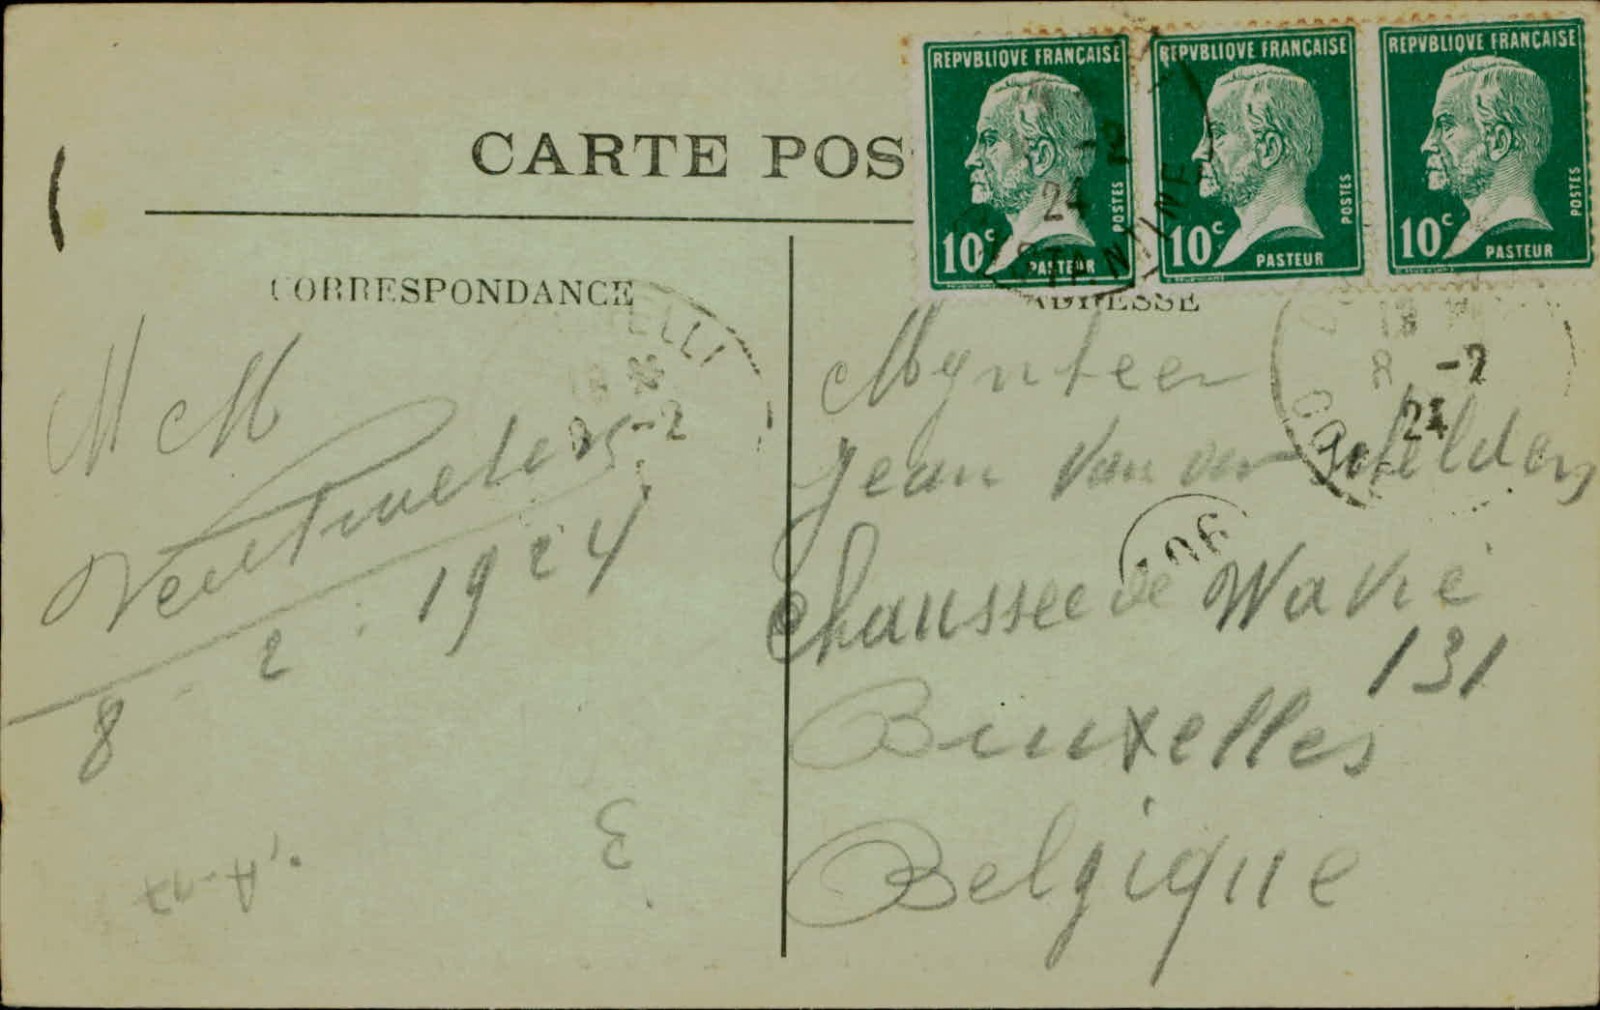 CARTE POS
REPVBLIQVE FRANÇAISE
10c
POSTES
PASTEUR
REPVBLIQVE FRANÇAISE
10c
POSTES
PASTEUR
REPVBLIQVE FRANÇAISE
10c
POSTES
PASTEUR
CORRESPONDANCE
ADRESSE
-2
24
18
8 -2
24
-2
M M
8 - 2 . 1924
3
Mynheer
Jean Van der
Chaussee de Wavre
131
Bruxelles
Belgique